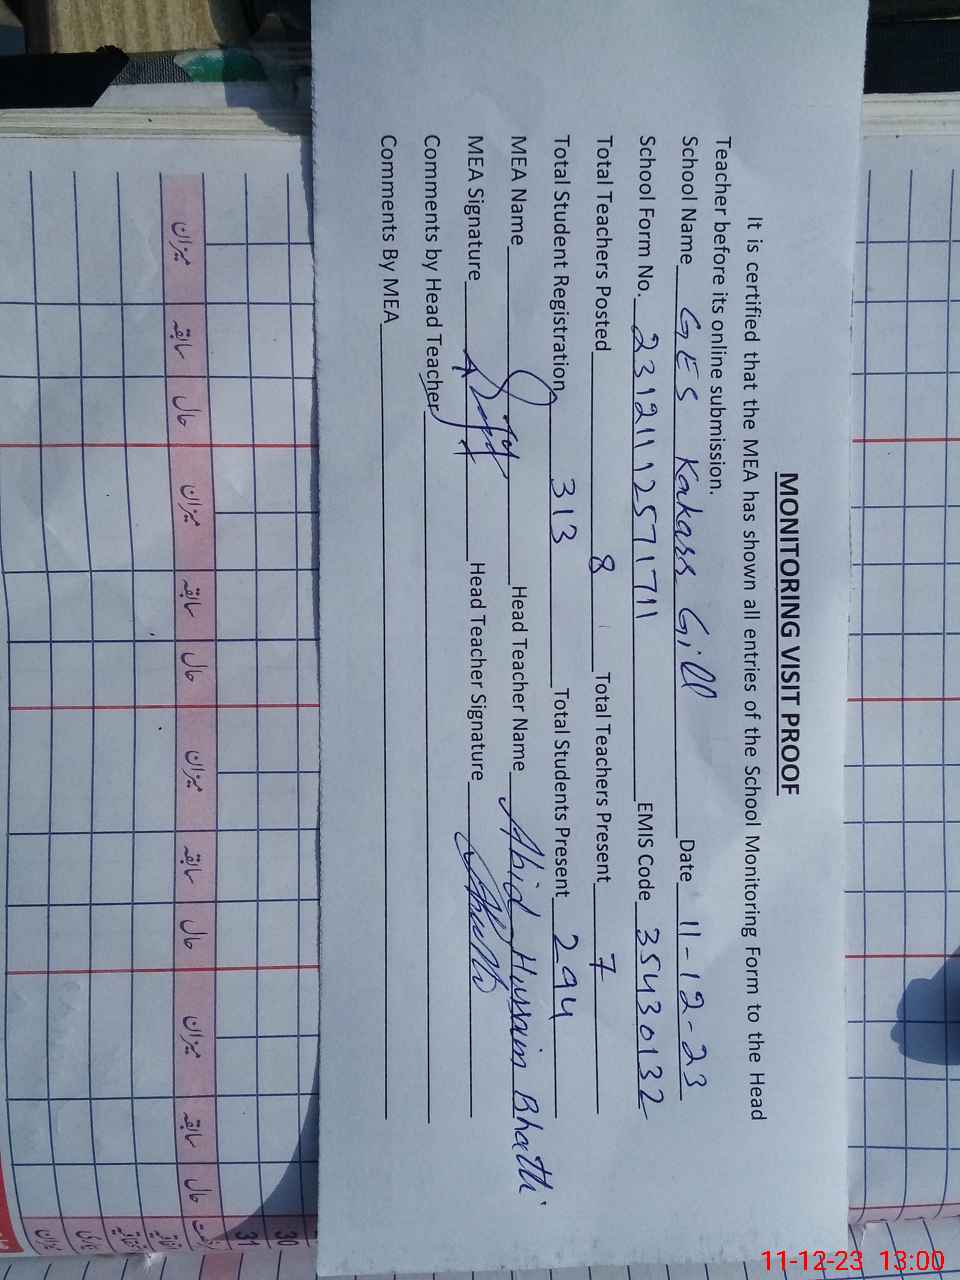 MONITORING VISIT PROOF
It is certified that the MEA has shown all entries of the School Monitoring Form to the Head
Teacher before its online submission.
School Name GES Kakarr Gill Date 11-12-23
School Form No. 23121112571711 EMIS Code 35430132
Total Teachers Posted 8 Total Teachers Present 7
Total Student Registration 313 Total Students Present 294
MEA Name Head Teacher Name Abid Hussain Bhatti
MEA Signature Head Teacher Signature
Comments by Head Teacher
Comments By MEA
میزان سابقہ حال میزان سابقہ حال میزان سابقہ حال میزان سابقہ حال
31
30
میزان
11-12-23 13:00